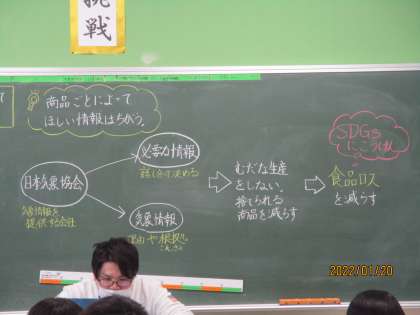 挑戦
商品ごとによって
ほしい情報はちがう。
日本気象協会
気象情報を
提供する会社
必要な情報
話し合って決める
気象情報
理由や根拠
むだな生産
をしない。
捨てられる
商品を減らす
SDGs
にこうけん
食品ロス
を減らす
2022/01/20